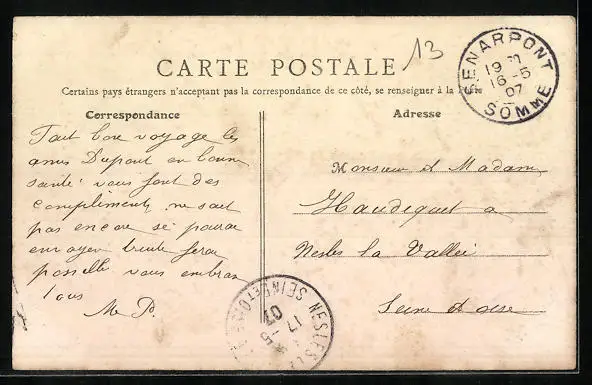 13
CARTE POSTALE
Certains pays étrangers n'acceptant pas la correspondance de ce côté, se renseigner à la Poste
SENARPONT
19
16-5
07
SOMME
Correspondance
Tout bon voyage les
amis Dupont en bonne
santé vous font des
compliments ne sait
pas encore si pourra
envoyer fera
possible vous embras
tous
M P.
Adresse
Monsieur et Madame
Haudiquet a
Nesles la Vallée
Seine et oise
NESLES LA
SEINE ET OISE
17-5
07